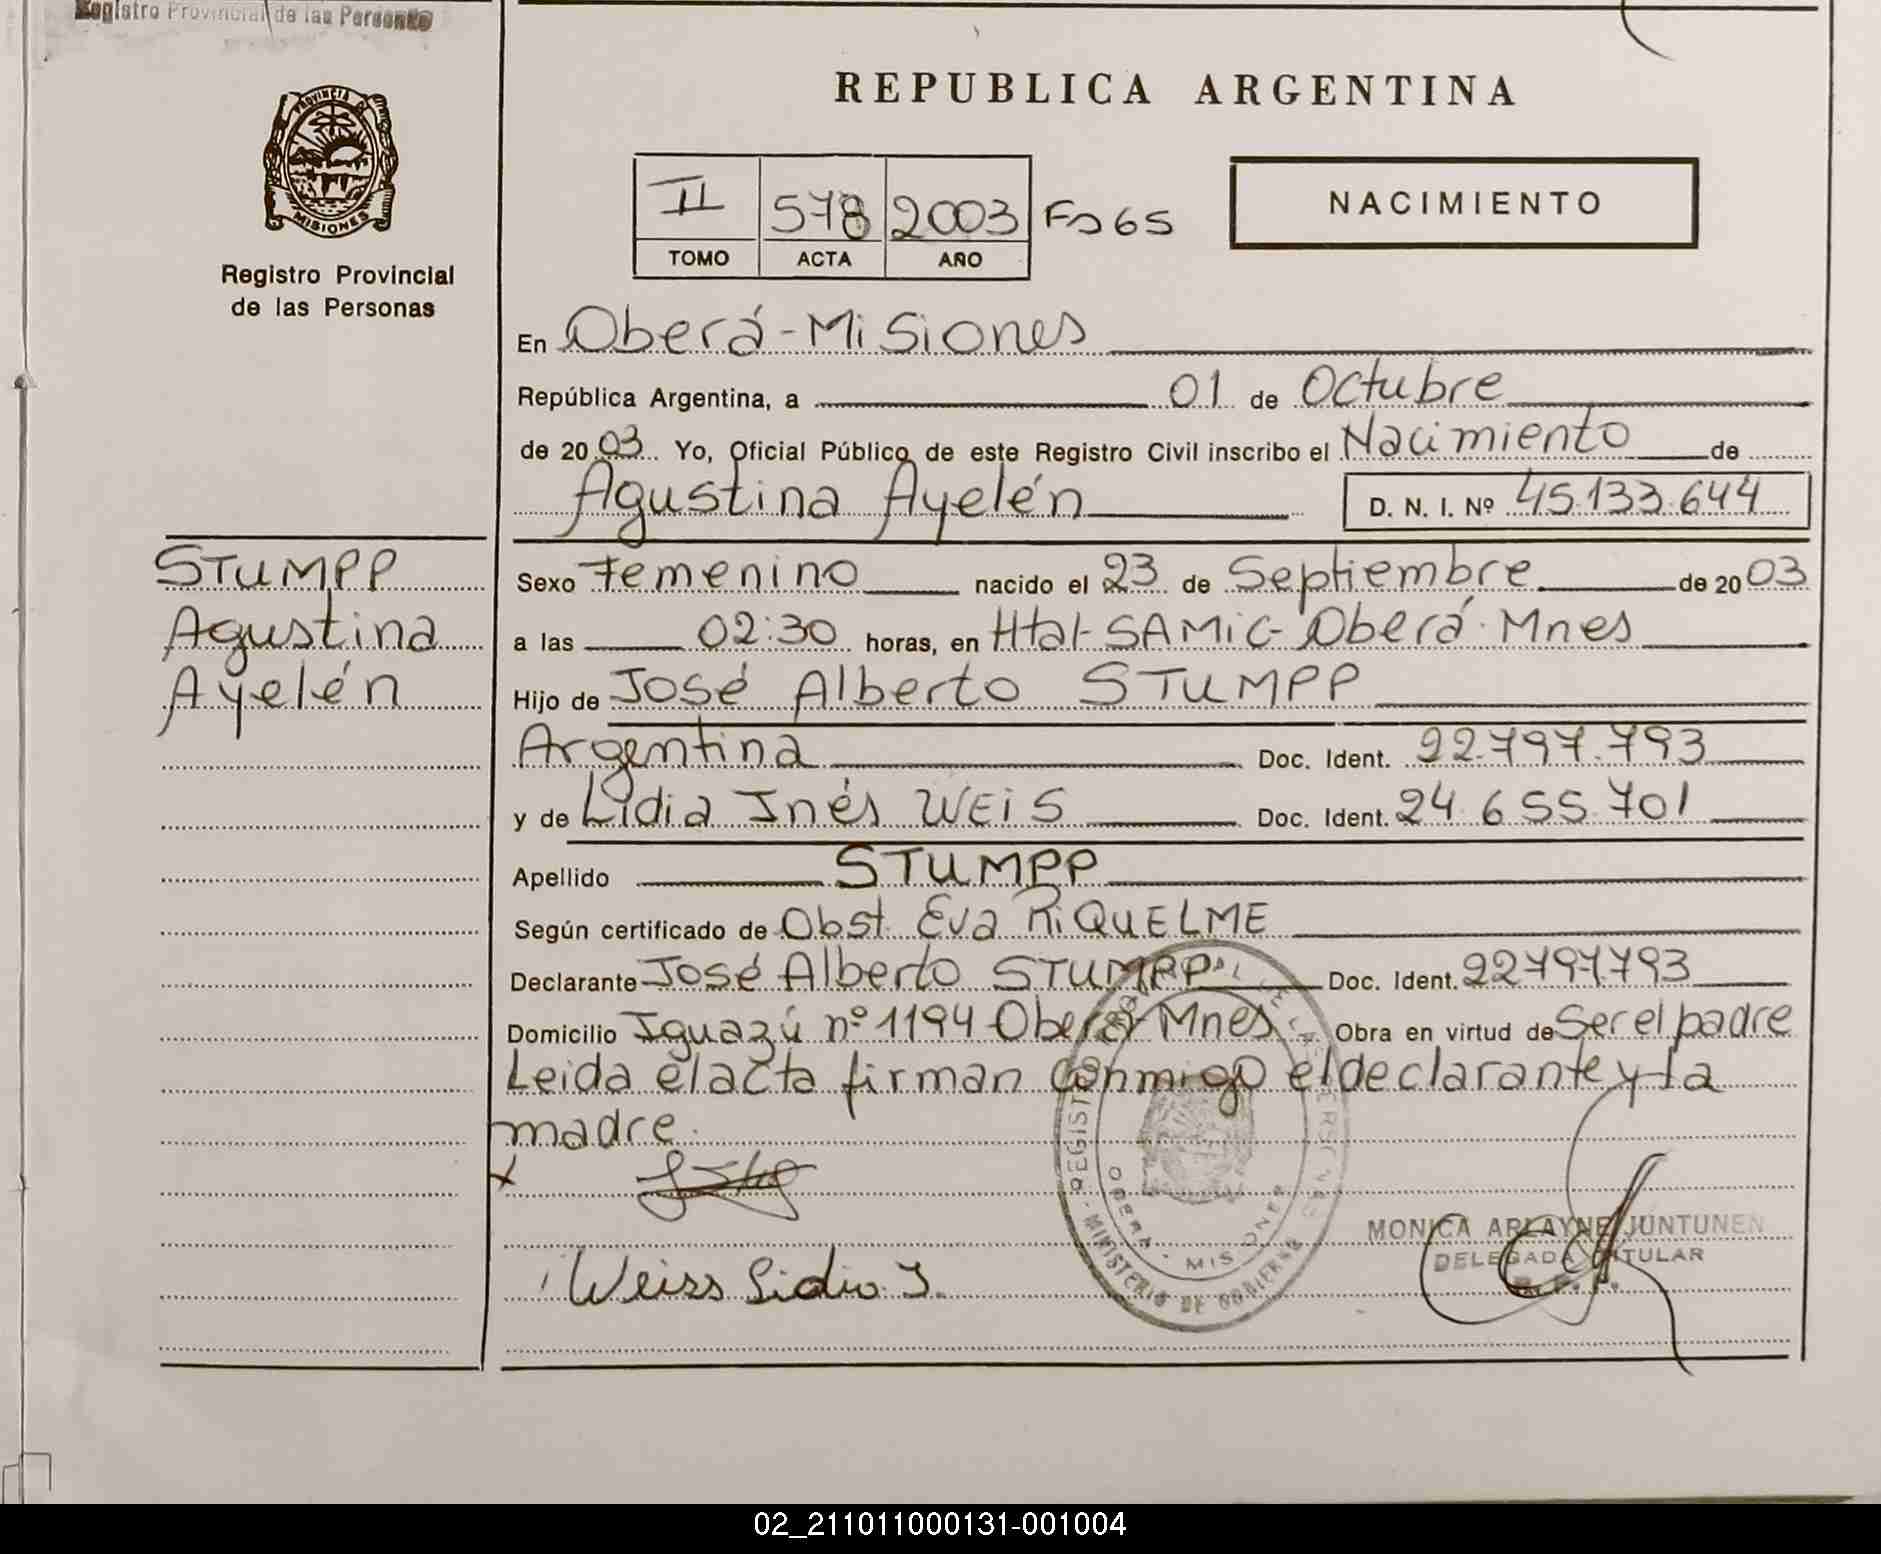 Registro Provincial de las Personas
REPUBLICA ARGENTINA
PROVINCIA DE
MISIONES
Registro Provincial
de las Personas
II 578 2003 Fº 65
TOMO ACTA AÑO
NACIMIENTO
En Oberá - Misiones
República Argentina, a 01 de Octubre
de 2003. Yo, Oficial Público de este Registro Civil inscribo el Nacimiento de
Agustina Ayelén D. N. I. Nº 45.133.644
STUMPP
Agustina
Ayelén
Sexo Femenino nacido el 23 de Septiembre de 2003
a las 02:30 horas, en Htal-SAMIC-Oberá-Mnes
Hijo de José Alberto STUMPP
Argentina Doc. Ident. 22.797.793
y de Lidia Inés WEIS Doc. Ident. 24.655.701
Apellido STUMPP
Según certificado de Obst. Eva RIQUELME
Declarante José Alberto STUMPP Doc. Ident. 22797.793
Domicilio Iguazú nº 1194 Oberá Mnes Obra en virtud de Ser el padre
Leida el acta firman conmigo el declarante y la
madre.
MINISTERIO DE GOBIERNO
OBERA - MISIONES
MONICA ARLAYNE JUNTUNEN
DELEGADA TITULAR
Weiss Lidia I.
02_211011000131-001004